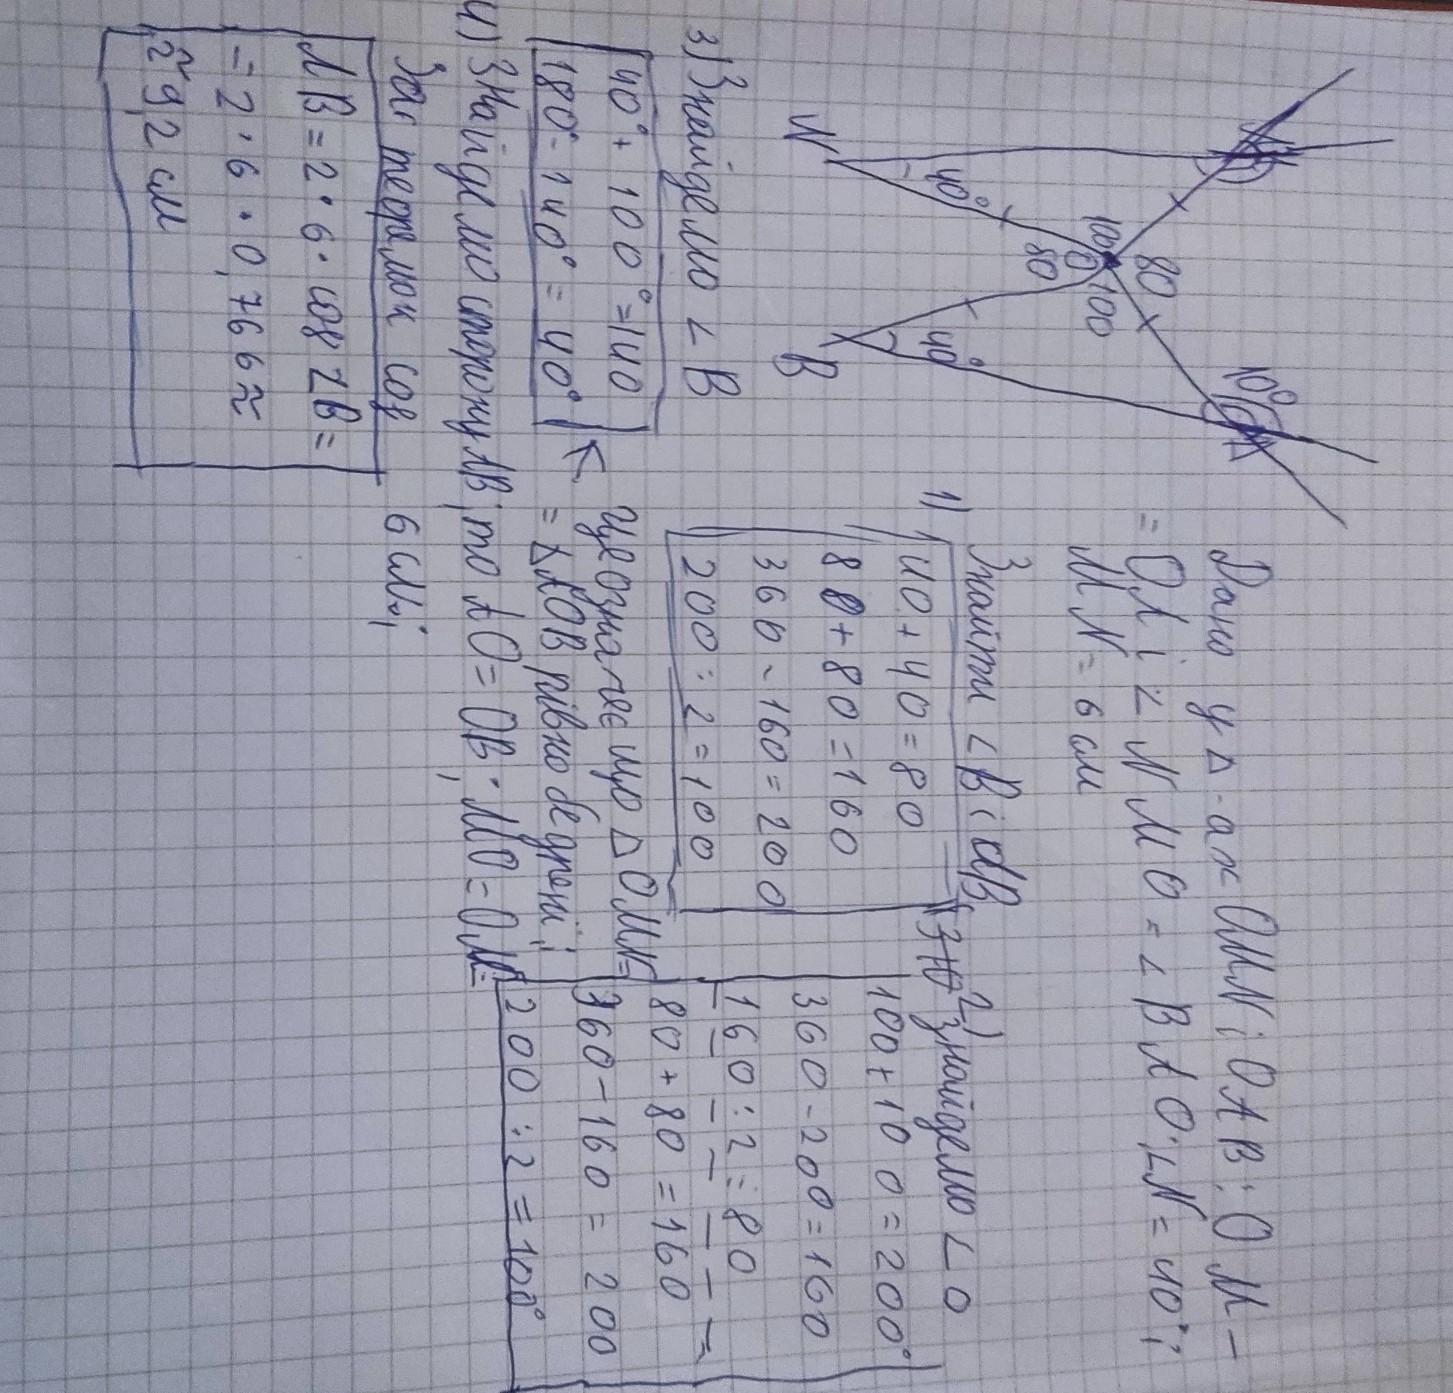 Дано у Δ-ах OMN і OAB: OM=
= OA і ∠NMO = ∠BAO; ∠N = 40°;
MN = 6 см
Знайти ∠B і AB
1) 40 + 40 = 80
80 + 80 = 160
360 - 160 = 200
200 : 2 = 100
2) Знайдемо ∠O
100 + 100 = 200°
360 - 200 = 160
160 : 2 = 80
80 + 80 = 160
360 - 160 = 200
200 : 2 = 100°
N
40°
100
O
80
80
100
B
40°
100
A
3) Знайдемо ∠B
40° + 100° = 140
180° - 140° = 40°
це означає що Δ OMN =
= Δ AOB рівнобедрені;
4) Знайдемо сторону AB, то AO = OB; MO = ON =
6 см;
За теоремою cos
AB = 2 · 6 · cos ∠B =
= 2 · 6 · 0,766 ≈
≈ 9,2 см